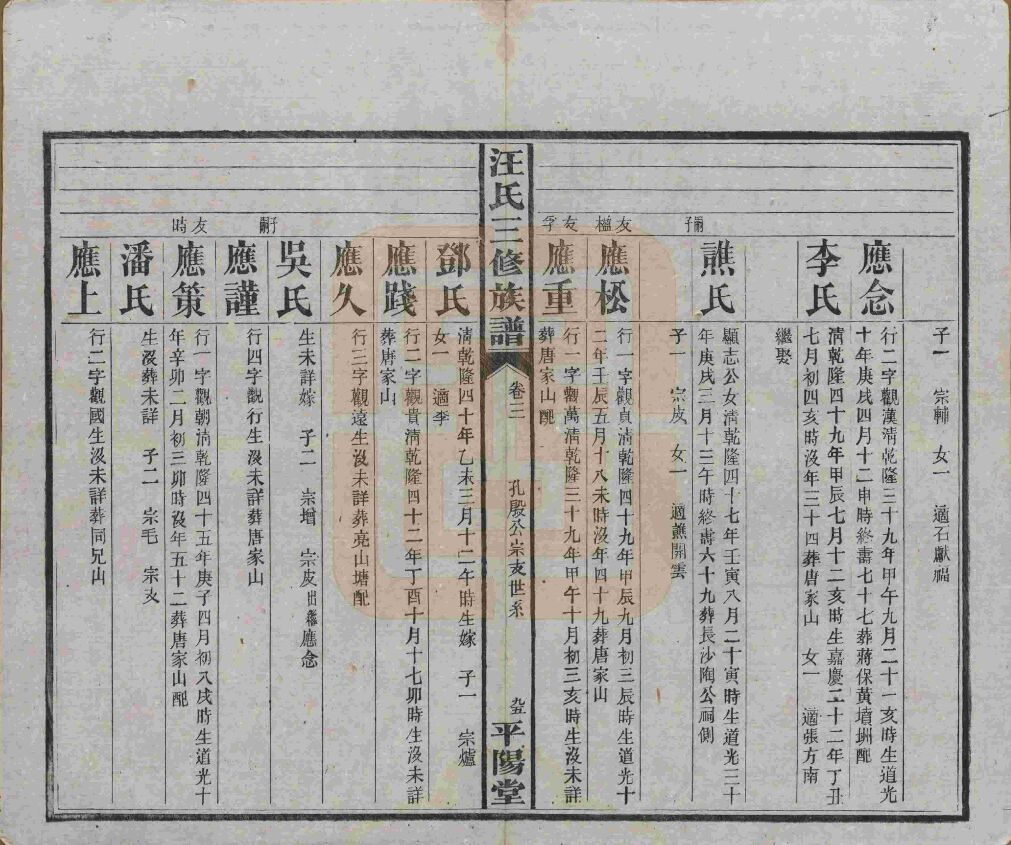 子一　宗輔　女一　適石獻福
應念
行二字觀漢清乾隆三十九年甲午九月二十一亥時生道光
十年庚戌四月十二申時終壽七十七葬蔣保黃墳㘭配
李氏
清乾隆四十九年甲辰七月十二亥時生嘉慶二十二年丁丑
七月初四亥時沒年三十四葬唐家山　女一　適張方南
繼娶
嗣子
譙氏
顯志公女清乾隆四十七年壬寅八月二十寅時生道光三十
年庚戌三月十三午時終壽六十九葬長沙陶公祠側
子一　宗皮　女一　適譙開雲
友楹
應松
行一字觀真清乾隆四十九年甲辰九月初三辰時生道光十
二年壬辰五月十八未時沒年四十九葬唐家山
友孚
應重
行一字觀萬清乾隆三十九年甲午十月初三亥時生沒未詳
葬唐家山配
汪氏三修族譜
卷三
孔殿公崇支世系
九五
平陽堂
鄧氏
清乾隆四十年乙未三月十二午時生嫁　子一　宗爐
女一　適李
應踐
行二字觀貴清乾隆四十二年丁酉十月十七卯時生沒未詳
葬唐家山
應久
行三字觀遠生沒未詳葬亮山塘配
吳氏
生未詳嫁　子二　宗增　宗皮出繼應念
子嗣
應謹
行四字觀行生沒未詳葬唐家山
友時
應策
行一字觀朝清乾隆四十五年庚子四月初八戌時生道光十
年辛卯二月初三卯時沒年五十二葬唐家山配
潘氏
生沒葬未詳　子二　宗毛　宗支
應上
行二字觀國生沒未詳葬同兄山